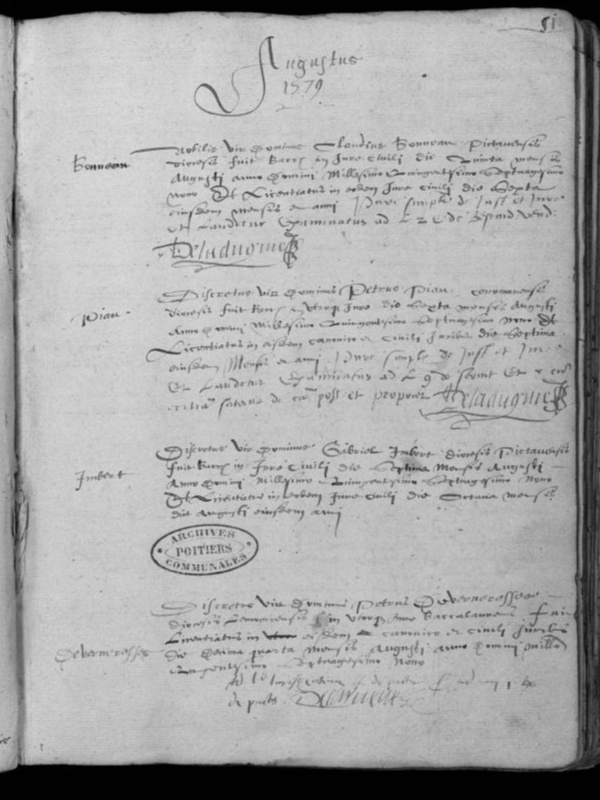 51
Augustus
1579
Bonneau
Nobilis vir Dominus Claudius Bonneau Pictavensis
diocesis fuit Bacc in Jure Civili die Quinta mensis
Augusti anno Domini Millesimo Quingentesimo Septuagesimo
nono Et Licentiatus in eodem Jure Civili die Sexta
eiusdem mensis et anni Jure simpl de Just et Jure
et Laudetur Examinatus ad L 2 C de
Deladugnie
Pian
Discretus vir Dominus Petrus Pian
diocesis fuit Bacc in utroq Jure die Sexta mensis Augusti
Anno Domini Millesimo Quingentesimo Septuagesimo nono Et
Licentiatus in eisdem canonico et Civili Juribus die Septima
eiusdem Mensis et anni Jure simple de Just et Jure
Et Laudetur Examinatus ad L 9 de
et proponer Deladugnie
Imbert
Discretus vir Dominus Gabriel Imbert diocesis Pictavensis
fuit Bacc in Jure Civili die Septima Mensis Augusti
Anno Domini Millesimo Quingentesimo Septuagesimo Nono
Et Licentiatus in eodem Jure Civili die Octava mensis
dict Augusti eiusdem anni
ARCHIVES
POITIERS
COMMUNALES
Deverneresses
Discretus vir Dominus Petrus Deverneresses
diocesis Lemovicensis in utroq Jure Baccalaureus fuit
Licentiatus in eisdem canonico et Civili Juribus
die decima quarta mensis Augusti anno Domini mill
Quingentesimo Septuagesimo Nono
de pactis